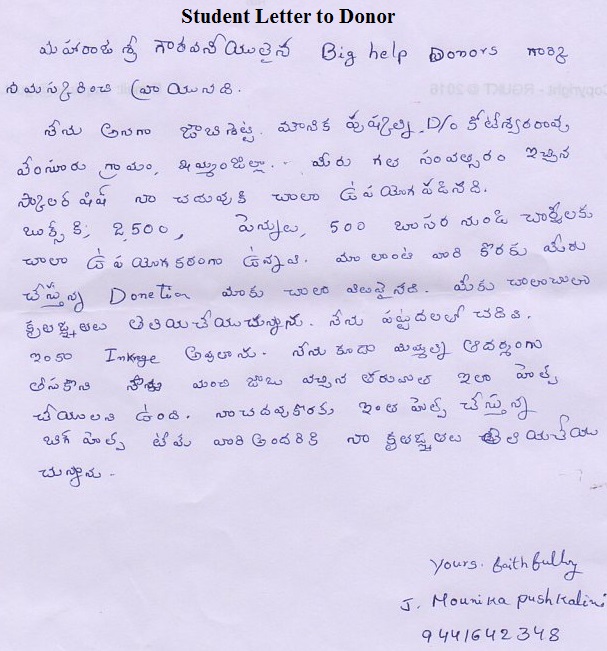 Student Letter to Donor
మహారాజ శ్రీ గౌరవనీయులైన Big help Donors గారికి
నమస్కరించి వ్రాయునది.
నేను అనగా జాబిశెట్టి. మౌనిక పుష్కలిని, D/o కోటేశ్వరరావు
వేంసూరు గ్రామం, ఖమ్మంజిల్లా.. మీరు గత సంవత్సరం ఇచ్చిన
స్కాలర్ షిప్ నా చదువుకి చాలా ఉపయోగపడినది.
బుక్స్ కి, 2,500, పెన్నులు, 500 బాసర నుండి చార్జీలకు
చాలా ఉపయోగకరంగా ఉన్నవి. మా లాంటి వారి కొరకు మీరు
చేస్తున్న Donetion మాకు చాలా విలువైనది. మీకు చాలాచాలా
కృతజ్ఞతలు తెలియచేయుచున్నాను. నేను పట్టుదలతో చదివి.
ఇంకా Inkrage అవుతాను. నేను కూడా మిమ్మల్ని ఆదర్శంగా
తీసుకొని మంచి జాబు వచ్చిన తరువాత ఇలా హెల్ప్
చేయాలని ఉంది. నాచదువుకొరకు ఇంత హెల్ప్ చేస్తున్న
బిగ్ హెల్ప్ టీము వారిఅందరికి నా కృతజ్ఞతలు తెలియచేయు
చున్నాను.
yours. faithfully
J. Mounika pushkalini
9441642348